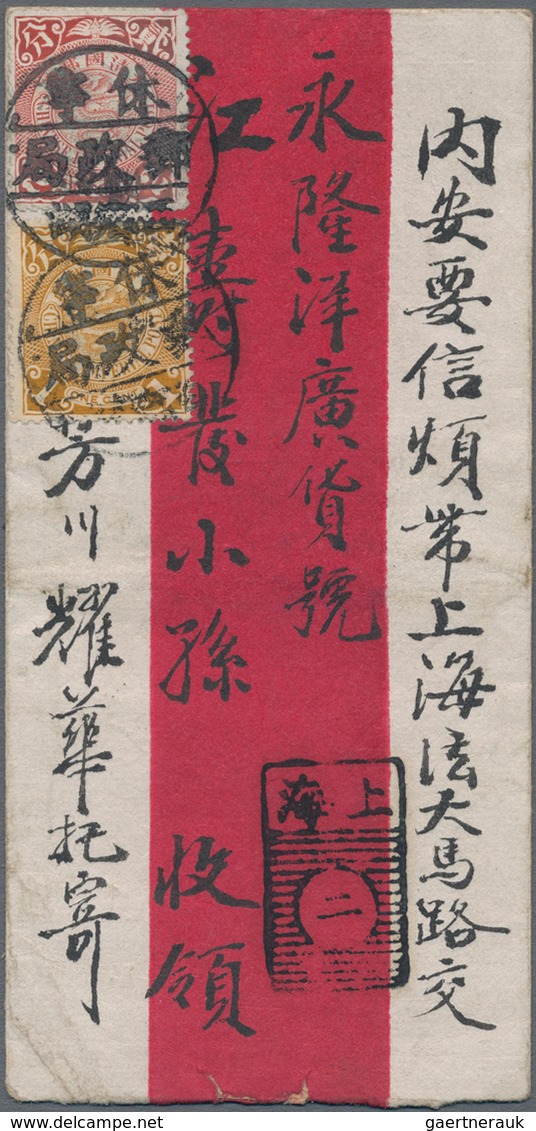 内安要信煩帶上海法大馬路交
永隆洋廣貨號
江壽發小孫 收領
芳川耀華托寄
上海
二
休寧
郵政局
分貳
ONE CENT
1
gaertnerauk